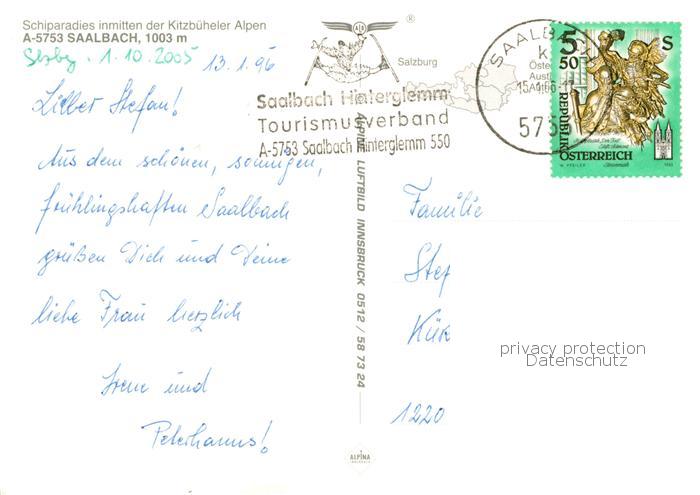 Schiparadies inmitten der Kitzbüheler Alpen
A-5753 SAALBACH, 1003 m
Slzbg. 1.10.2005
13.1.96
Lieber Stefan!
Aus dem schönen, sonnigen,
frühlingshaften Saalbach
grüßen Dich und Deine
liebe Frau herzlich
Irene und
Peterhanns!
®
Salzburg
Saalbach Hinterglemm
Tourismusverband
A-5753 Saalbach Hinterglemm 550
ALPINE LUFTBILD INNSBRUCK 0512 / 58 73 24
ALPINA
SAALBA
575
5 S
50
REPUBLIK
ÖSTERREICH
Familie
Stef
Kük
1220
privacy protection
Datenschutz